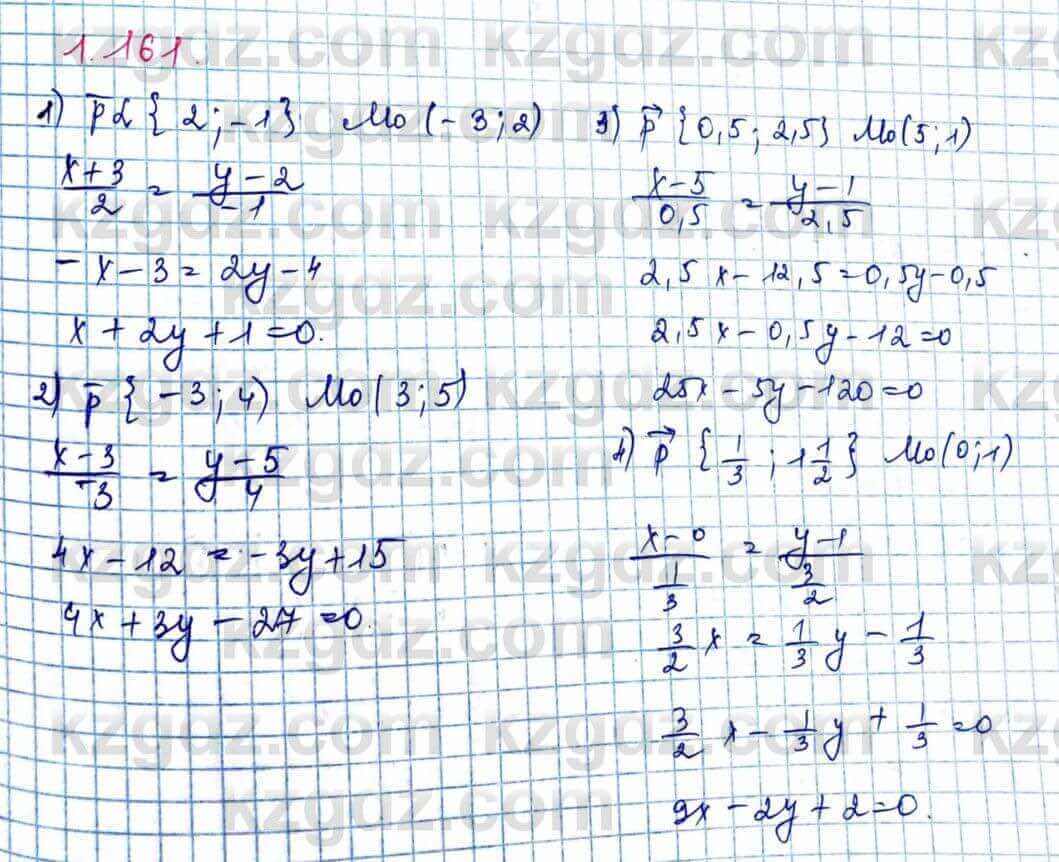 1.161.
1) p̄ {2; -1} Mo (-3; 2)
(x+3)/2 = (y-2)/-1
-x-3=2y-4
x+2y+1=0.
2) p̄ {-3; 4) Mo (3; 5)
(x-3)/-3 = (y-5)/4
4x-12=-3y+15
4x+3y-27=0.
3) p⃗ {0,5; 2,5} Mo(5; 1)
(x-5)/0,5 = (y-1)/2,5
2,5x-12,5=0,5y-0,5
2,5x-0,5y-12=0
25x-5y-120=0
4) p⃗ {1/3; 1 1/2} Mo(0; 1)
(x-0)/(1/3) = (y-1)/(3/2)
3/2 x = 1/3 y - 1/3
3/2 x - 1/3 y + 1/3 = 0
9x-2y+2=0.
kzgdz.com